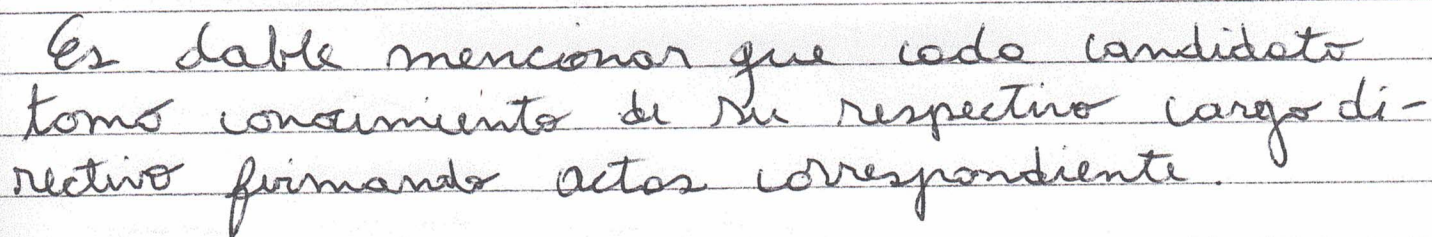 Es dable mencionar que cada candidato
tomó conocimiento de su respectivo cargo di-
rectivo firmando actas correspondiente.